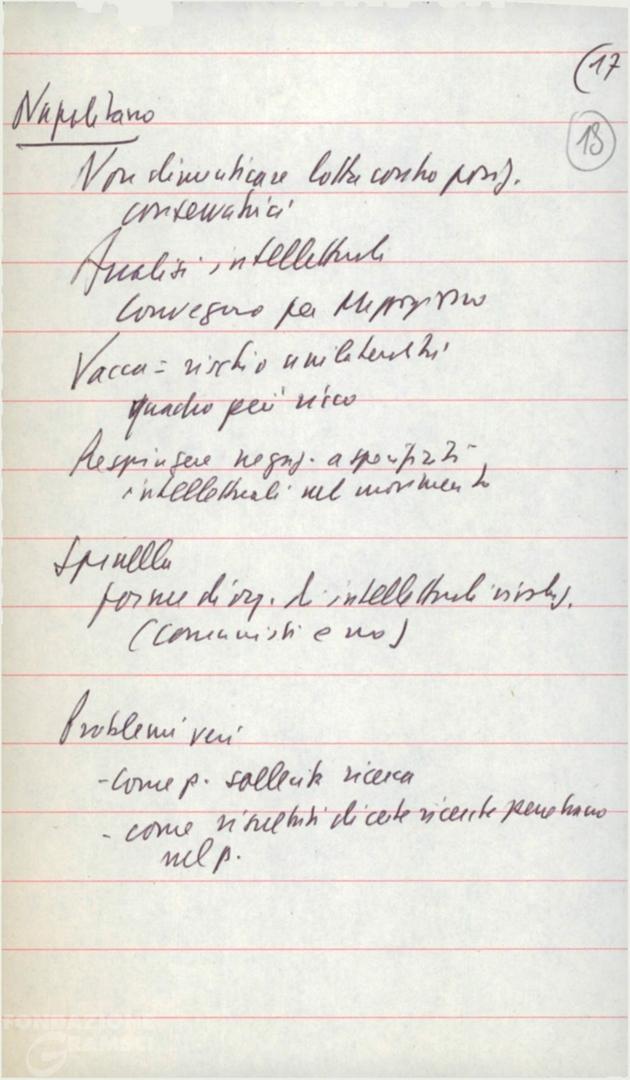 (17
18
Napolitano
Non dimenticare lotta contro posiz.
conservatrici
Analisi intellettuali
Convegno per Mezzogiorno
Vacca = rischio unilateralità
quadro più ricco
Respingere negaz. a
intellettuali nel movimento
Spinella
forme di org. di intellettuali
(comunisti e no)
Problemi veri
- come p. sollecita ricerca
- come risultati di certe ricerche penetrano
nel p.
FONDAZIONE
GRAMSCI